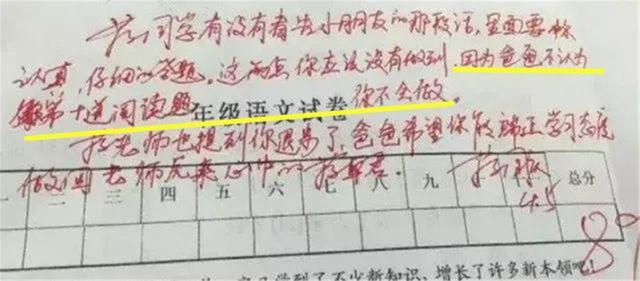 同学有没有看告小朋友的那段话,里面要你
认真,仔细的答题.这两点你应该没有做到.因为爸爸不认为
第十道阅读题 你不会做.
年级语文试卷
老师也提到你退步了,爸爸希望你能端正学习态度
做回老师原来心中的
一 二 三 四 五 六 七 八 九 总分
4.5
8
学到了不少新知识,增长了许多新本领吧!